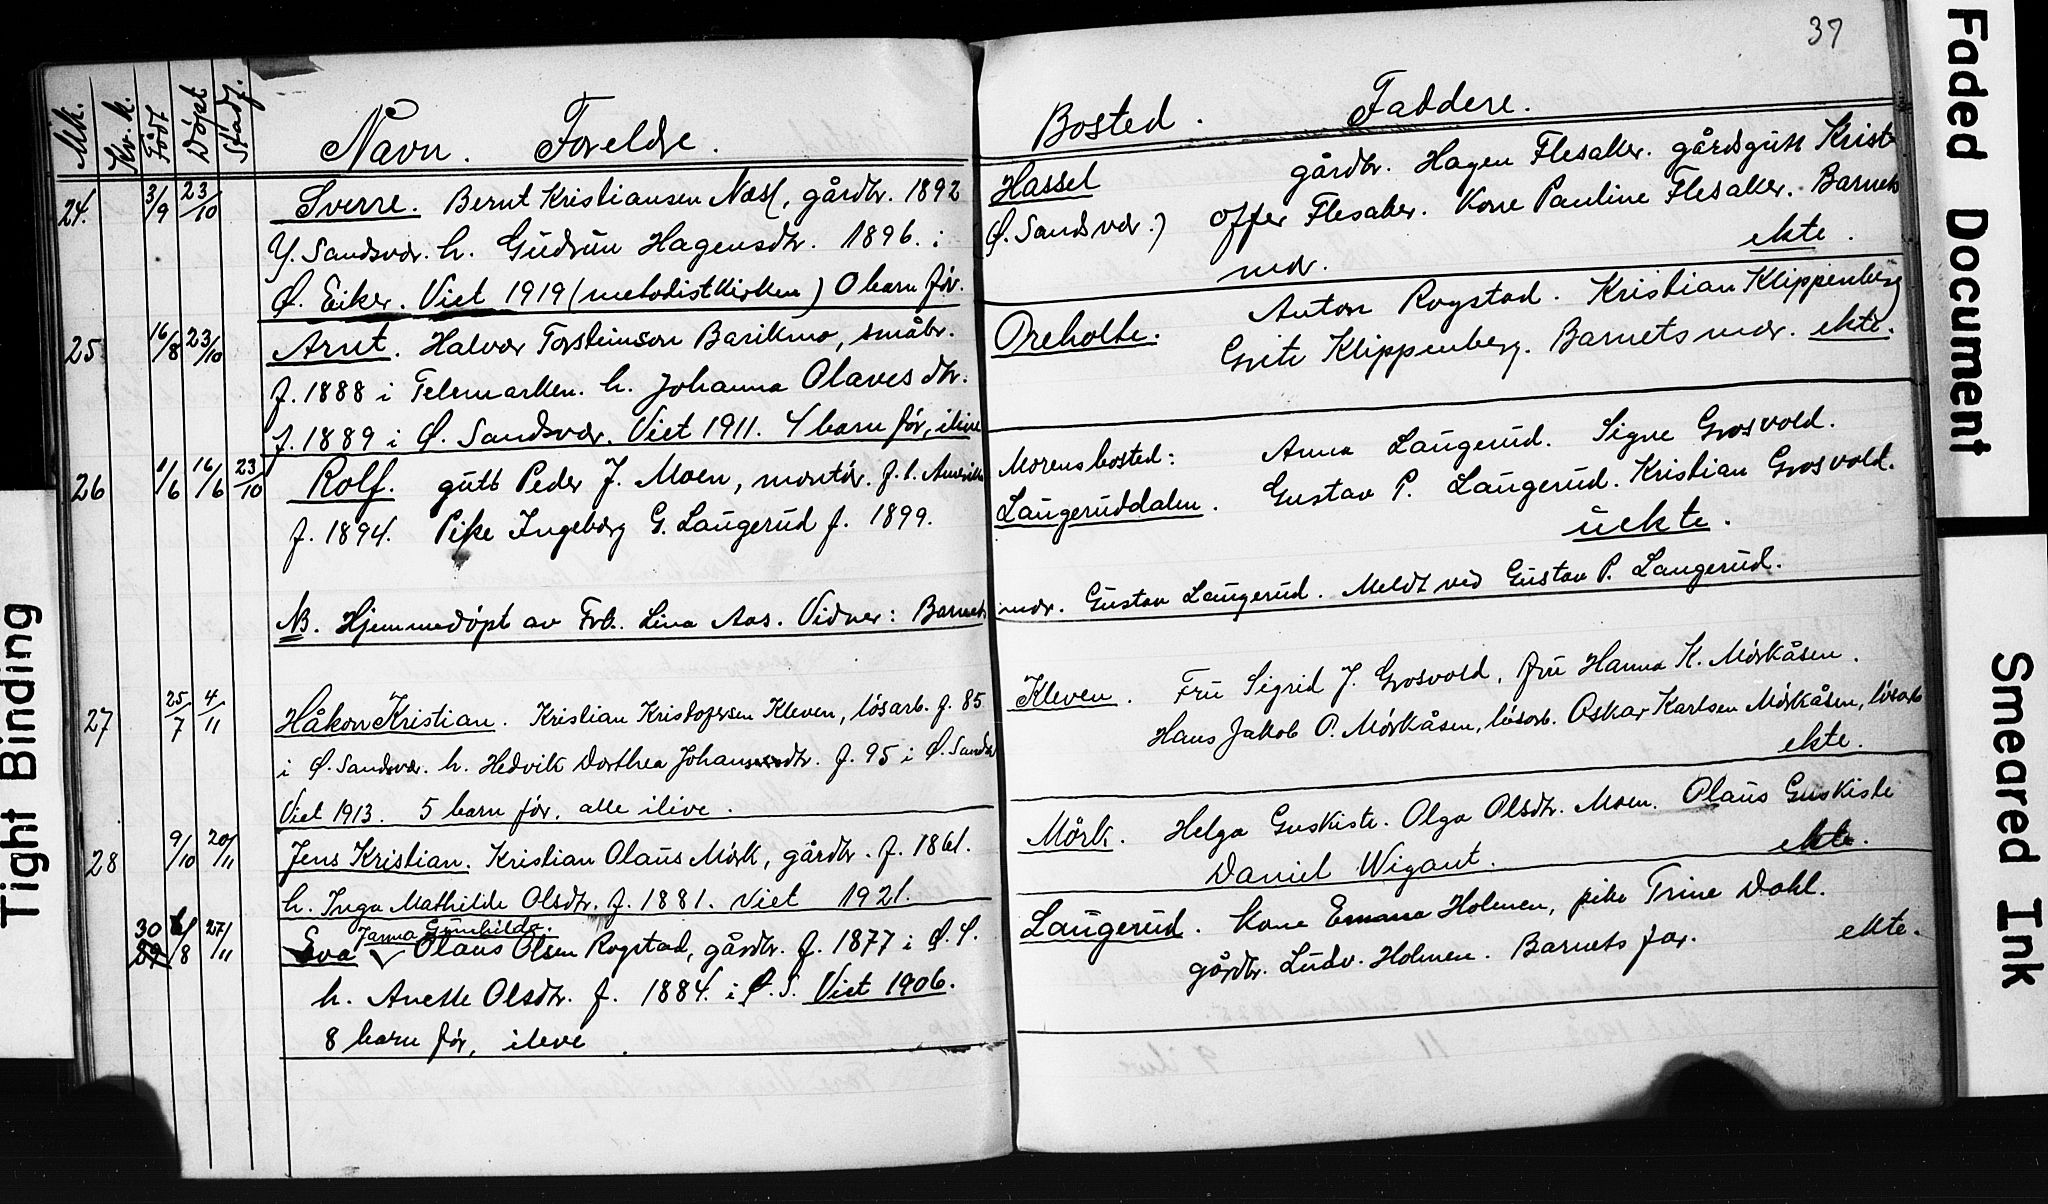 37
Mk. Kv.k. Födt Döpt Stadf. Navn. Foreldre. Bosted. Faddere.
24. 3/9 23/10 Sverre. Bernt Kristiansen Næss, gårdbr. 1892
Y. Sandsvær. h. Gudrun Hagensdtr. 1896. i
Ø. Eiker. Viet 1919 (metodistkirken) 0 barn før.
Hassel gårdbr. Hagen Flesaker. gårdsgutt Krist-
(Ø. Sandsvær.) offer Flesaker. Kone Pauline Flesaker. Barnets
mor. ekte.
25 16/8 23/10 Arnt. Halvor Torsteinson Barikmo, småbr.
f. 1888 i Telemarken. h. Johanna Olavesdtr.
f. 1889 i Ø. Sandsvær. Viet 1911. 4 barn før, ilive
Oreholte. Anton Rogstad. Kristian Klippenberg
Grite Klippenberg. Barnets mor. ekte.
26 1/6 16/6 23/10 Rolf. gutt Peder J. Moen, montør. f. t. Amerika
f. 1894. Pike Ingeborg G. Laugerud f. 1899.
Morens bosted: Anna Laugerud. Signe Grosvold.
Laugeruddalen. Gustav P. Laugerud. Kristian Grosvold.
uekte.
NB. Hjemmedøpt av Frk. Lina Aas. Vidner: Barnets mor. Gustav Laugerud. Meldt ved Gustav P. Laugerud.
27 25/7 4/11 Håkon Kristian. Kristian Kristofersen Kleven, løsarb. f. 85
i Ø. Sandsvær. h. Hedvik Dorthea Johansdtr. f. 95 i Ø. Sandsv
Viet 1913. 5 barn før, alle ilive.
Kleven. Fru Sigrid J. Grosvold, fru Hanna K. Mörkåsen.
Hans Jakob P. Mörkåsen, løsarb. Oskar Karlsen Mörkåsen, løsarb
ekte.
28 9/10 20/11 Jens Kristian. Kristian Olaus Mörk, gårdbr. f. 1861.
h. Inga Mathilde Olsdtr. f. 1881. Viet 1921.
Mörk. Helga Guskiste. Olga Olsdtr. Moen. Olaus Guskiste
Daniel Wigant. ekte.
Janna Gunhilda.
30 29 /8 27/11 Eva Olaus Olsen Rogstad, gårdbr. f. 1877 i Ø. S.
h. Anette Olsdtr. f. 1884. i Ø.S. Viet 1906.
8 barn før, ileve.
Laugerud. Kone Emma Holmen, pike Trine Dahl.
gårdbr. Ludv. Holmen. Barnets far. ekte.
Tight Binding
Faded Document
Smeared Ink